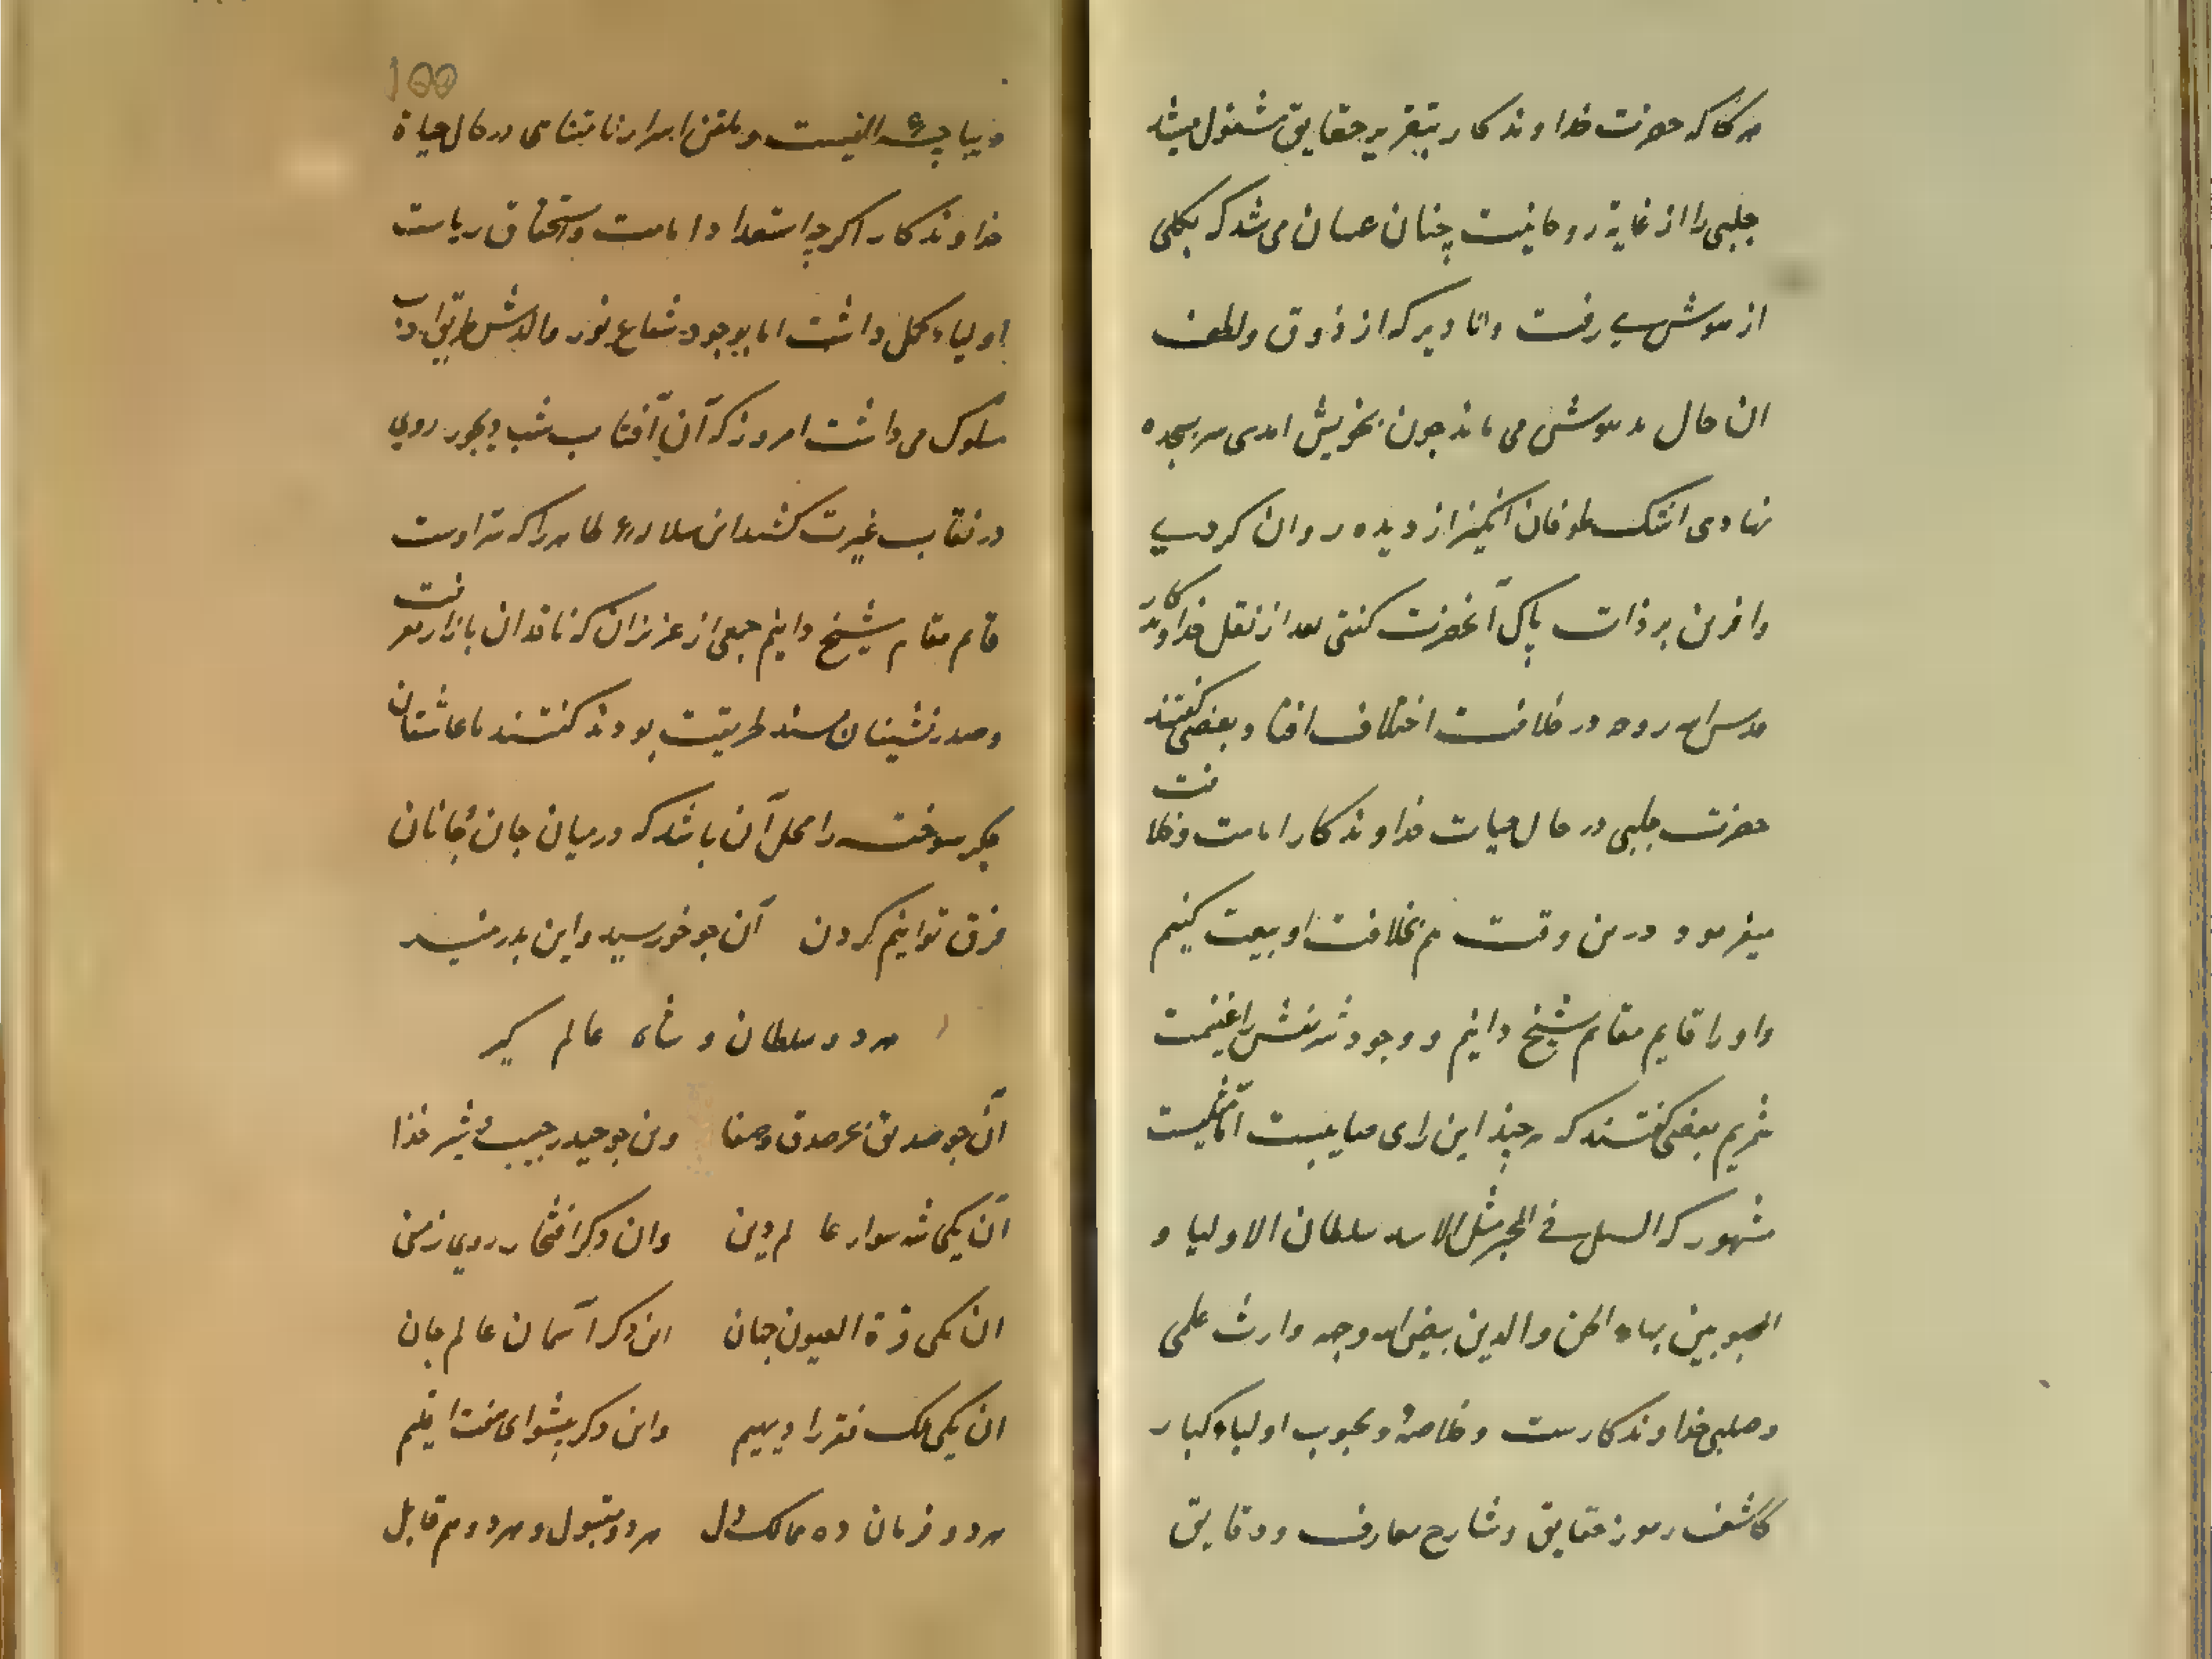 هرگاه که حضرت خداوندکار بتقریر حقایق مشغول میشد
چلبی را از غایة روحانیت چنان عیان می شد که بکلی
از هوش می رفت و تا دیر که از ذوق و لطف
ان حال مدهوش می ماند چون بخویش امدی سر بسجده
نهادی اشک طوفان انگیز از دیده روان کردی
وافرین بر ذات پاک آنحضرت گفتی بعد از نقل خداوندکار
قدس الله روحه در خلافت اختلاف افتاد بعضی گفتند
حضرت چلبی در حال حیات خداوندکار امامت و خلافت
میفرمود درین وقت هم بخلافت او بیعت کنیم
واو را قایم مقام شیخ دانیم و وجود شریفش را غنیمت
شمریم بعضی گفتند که هر چند این رای صایبست اما مثلیست
مشهور که الشبل فی المخبر مثل الاسد سلطان الاولیا و
المحبوبین بهاء الحق والدین بیض الله وجهه وارث علمی
و صلبی خداوندکارست و خلاصهٔ و محبوب اولیاء کبار
کاشف رموز حقایق و شارح معارف و دقایق
۱۵۵
و دیباچهٔ انسیست و ملقن اسرار نامتناهی در حال حیاة
خداوندکار اگر چه استعداد امامت و استحقاق ریاست
اولیاء کمل داشت اما بوجود شعاع نور والدش طریق اداب
سلوک می داشت امروز که آن آفتاب شب دیجور روی
در نقاب غیرت کشید این سلالهٔ طاهر را که سزاوست
قایم مقام شیخ دانیم جمعی از عزیزان که ناقدان بازار معرفت
و صدرنشینان مسند طریقت بودند گفتند ما عاشقان
جگر سوخته را محل آن باشد که در میان جان و جانان
فرق توانیم کردن آن چو خورشید و این بدر منیر
هر دو سلطان و شاه عالم گیر
آن چو صدیق بحر صدق و صفا وین چو حیدر حبیب و شیر خدا
آن یکی شه سوار عالم دین وان دگر افتخار روی زمین
ان یکی قرة العیون جهان این دگر آسمان عالم جان
ان یکی ملک فقر را دیهیم واین دگر پیشوای هفت اقلیم
هر دو فرمان ده ممالک دل هر دو مقبول و هر دو هم قابل